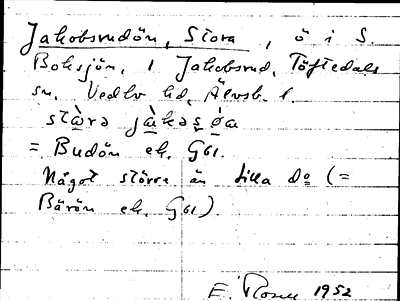 Jakobsrudön, Stora, ö i S.
Boksjön, i Jakobsrud, Töftedals
sn. Vedbo hd, Älvsb. l.
= Budön ek. G61.
Något större än Lilla do (=
Bärön ek. G61).
E. Rosell 1952